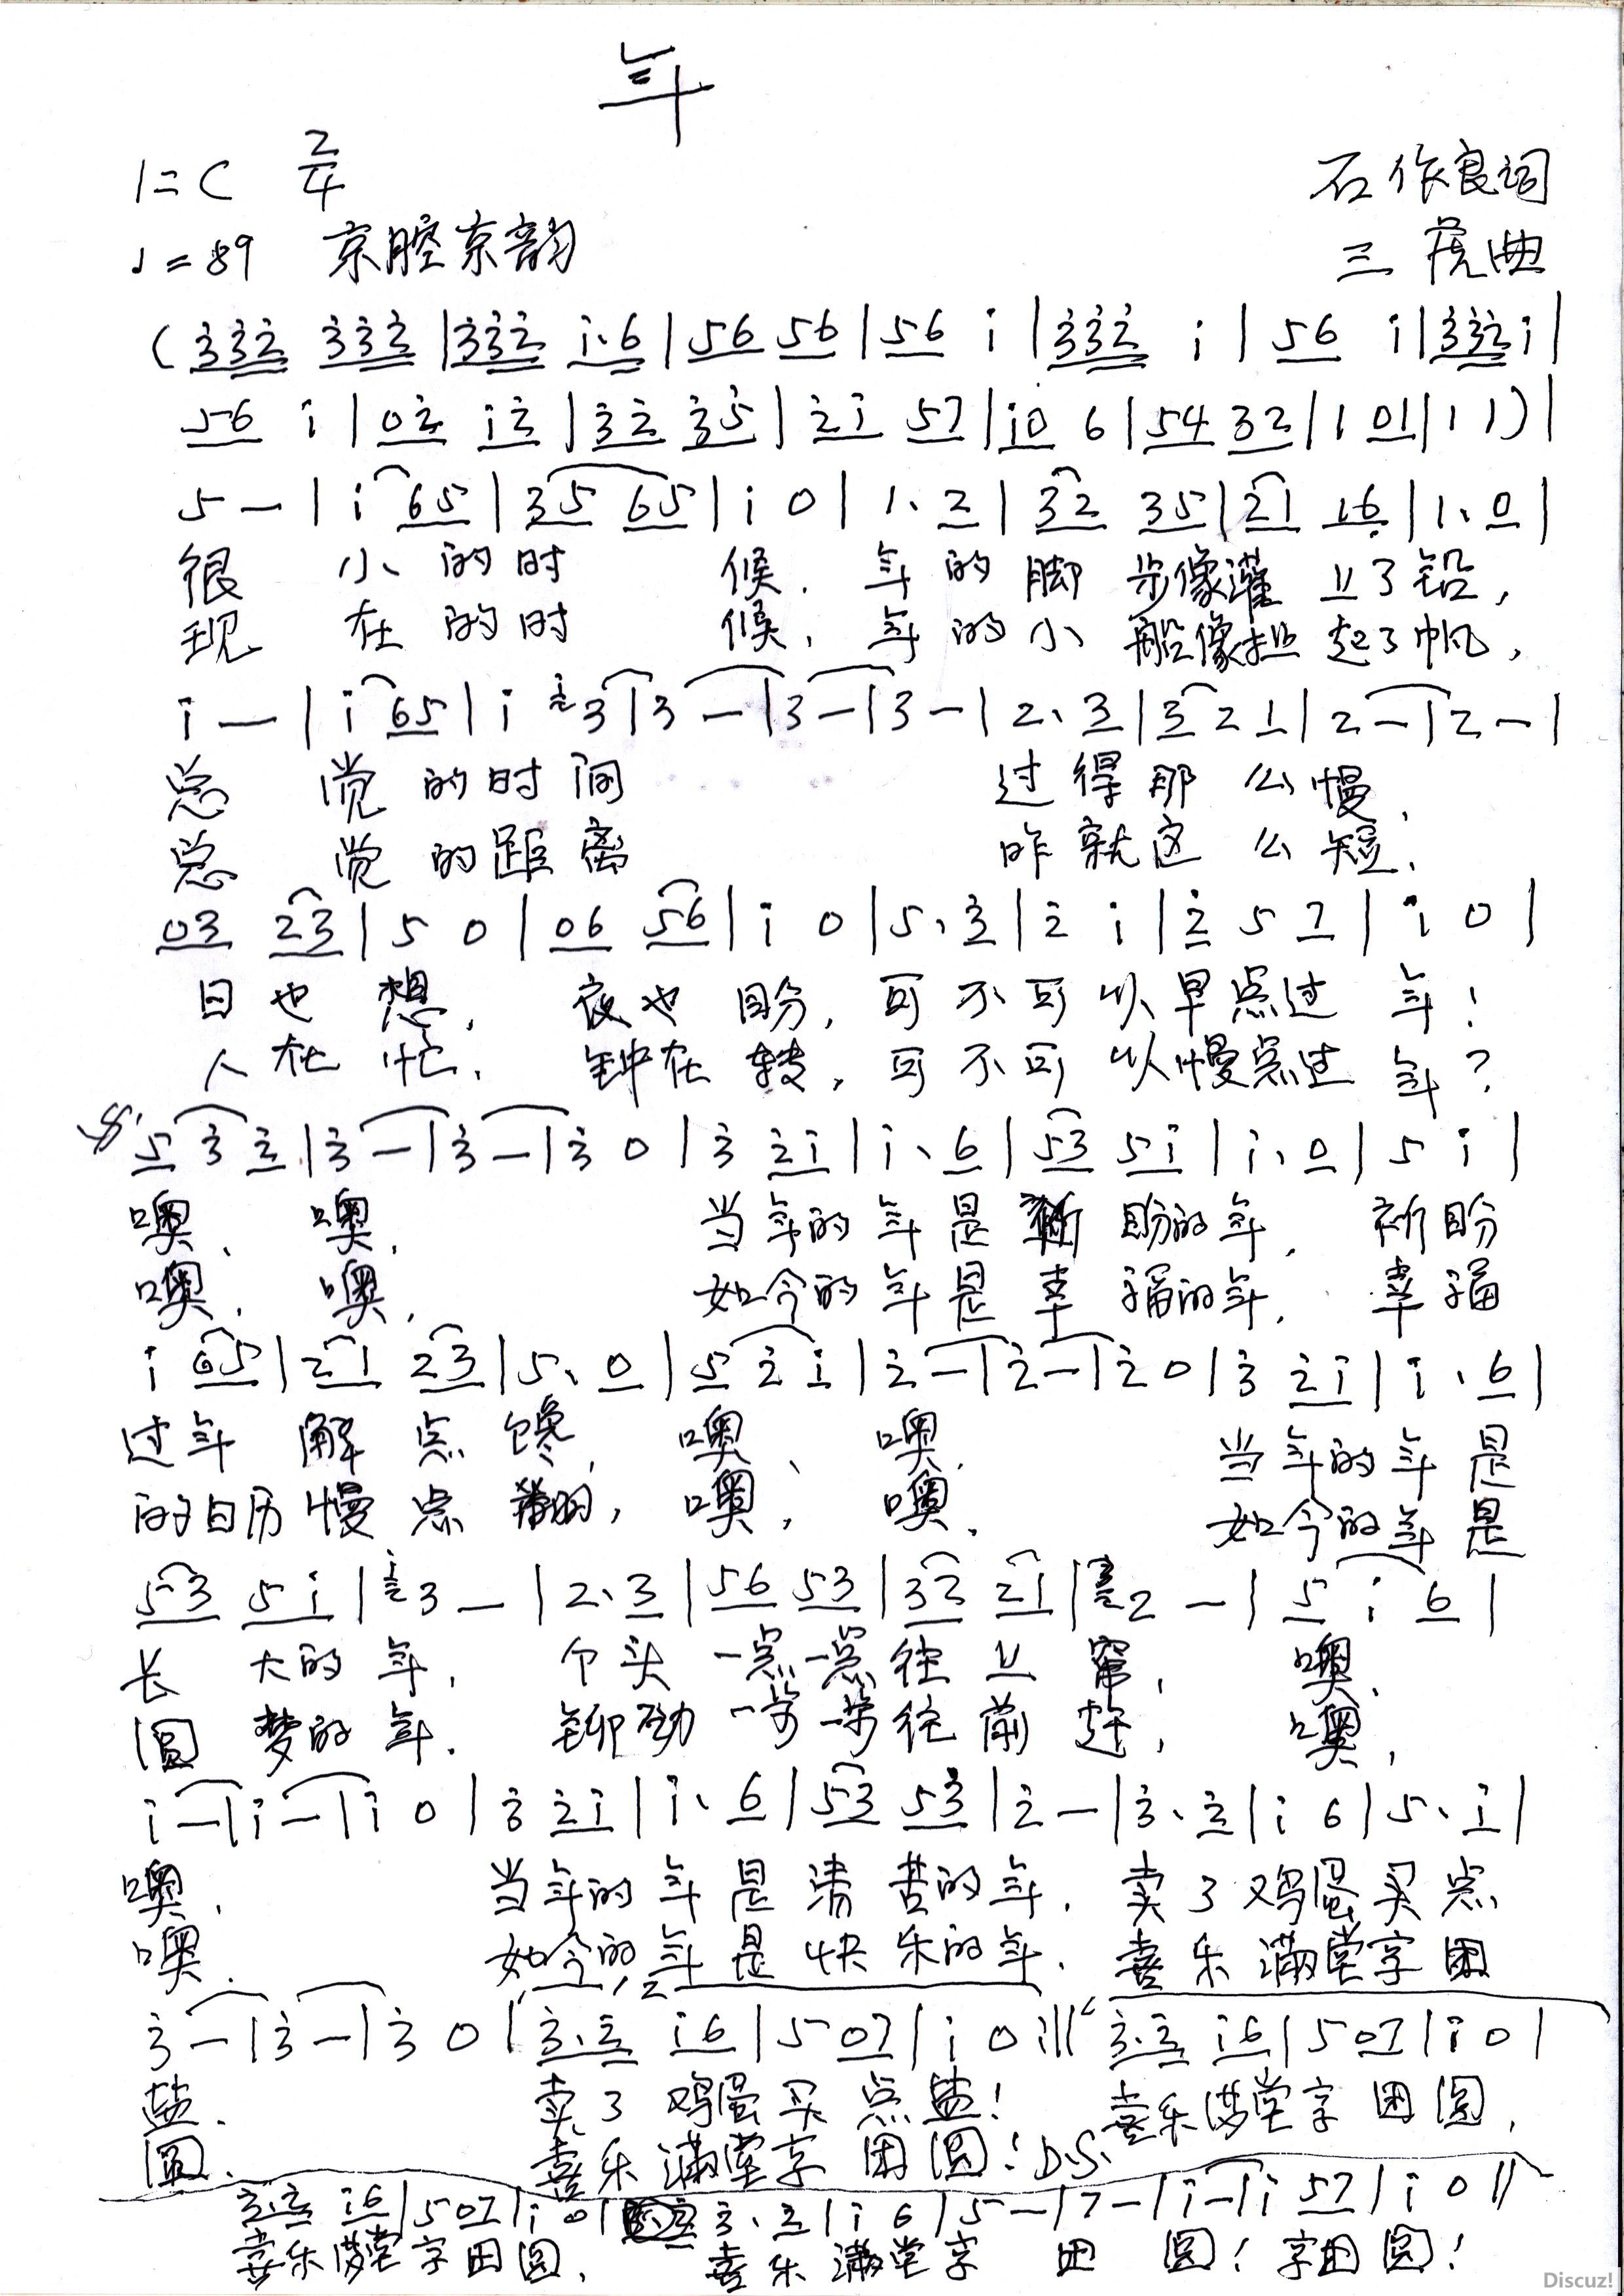 年
1=C 2/4
石作良词
♩=89 京腔京韵
三虎曲
(3̇3̇2̇ 3̇3̇2̇ | 3̇3̇2̇ i·6 | 56 56 | 56 i | 3̇3̇2̇ i | 56 i | 3̇3̇2̇ i |
56 i | 02̇ i2̇ | 3̇2̇ 3̇5̇ | 2̇i 57 | i0 6 | 54 32 | 1 01 | 1 1) |
5 — | i 65 | 35 65 | i 0 | 1· 2 | 32 35 | 21 16̣ | 1· 0 |
很 小的时 候. 年的脚 步像灌 上了铅,
现 在的时 候, 年的小 船像扯 起了帆,
i — | i 65 | i 3 | 3 — | 3 — | 3 — | 2· 3 | 3 2 1 | 2 — | 2 — |
总 觉的时间 过得那 么慢,
总 觉的距离 咋就这 么短.
03 23 | 5 0 | 06 56 | i 0 | 5· 3̇ | 2̇ i | 2̇ 5 7 | i 0 |
日也想, 夜也盼, 可不可以早点过 年!
人在忙, 钟在转, 可不可以慢点过 年?
5 3̇ 2̇ | 3̇ — | 3̇ — | 3̇ 0 | 3̇ 2̇i | i· 6 | 53 5i | i· 0 | 5 i |
噢, 噢, 当年的年是祈盼的年, 祈盼
噢, 噢, 如今的年是幸福的年, 幸福
i 65 | 21 23 | 5· 0 | 5 2̇ i | 2̇ — | 2̇ — | 2̇ 0 | 3̇ 2̇i | i· 6 |
过年 解点馋, 噢, 噢, 当年的年是
的日历慢点翻, 噢, 噢, 如今的年是
53 5i | 3 — | 2· 3 | 56 53 | 32 21 | 2 — | 5 i 6 |
长 大的年, 个头一点一点往上窜, 噢,
圆 梦的年, 铆劲一步一步往前赶, 噢,
i — | i — | i 0 | 3̇ 2̇i | i· 6 | 53 53̇ | 2̇ — | 3̇· 2̇ | i 6 | 5· i |
噢, 当年的年是清苦的年, 卖了鸡蛋买点
噢, 如今的年是快乐的年, 喜乐满堂享团
3̇ — | 3̇ — | 3̇ 0 | 3̇·2̇ i6 | 5 07 | i 0 :|| 3̇·2̇ i6 | 5 07 | i 0 |
盐. 卖了鸡蛋买点盐! 喜乐满堂享团圆,
圆. 喜乐满堂享团圆! D.S.
3̇·2̇ i6 | 5 07 | i 0 | 3̇· 2̇ | i 6 | 5 — | 7 — | i — | i 57 | i 0 ||
喜乐满堂享团圆, 喜乐满堂享团圆! 享团圆!
Discuz!